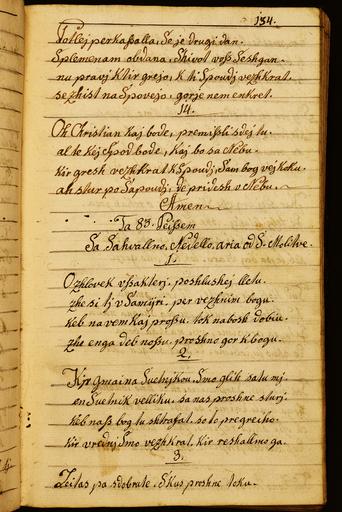 134.
Totlej perkaßalla, Se je drugi dan.
Splemenam obdana, Shivot voß Seshgan.
nu pravj Ktir greso, k ti Spoudj vezhkrat.
se zhist na Spovejo, gorje nem enkret.
14.
Oh Christian kaj bode, premißli sdej tu.
al te kej Spod bode, kaj bo sa Nebu.
kir gresh vezhkrat k Spoudj, Sam bog vej koku.
ah stur po Sapoudj, de pridesh v Nebu.
Amen
Ta 83. Peißem
Sa Sahvallno, Nedello, aria od S. Molitve.
1.
O zhlovek vßakterj, poshlushej lletu.
zhe si tj v Samijri, per vezhnim bogu.
keb na vem kaj proßu, tok na bosh dobiu.
zhe enga deb noßu, proshno gor k bogu.
2.
Kir gmaina Suetnjkou, Smo glih sa tu mj.
en Suetnik velliku, sa nas proshne sturj.
keb naß bog tu shtrafat, so to pregreiho.
kir vrednj Smo vezhkrat, kir reshallmo ga.
3.
Zeitas pa sdobrute, Skus proshne toku.